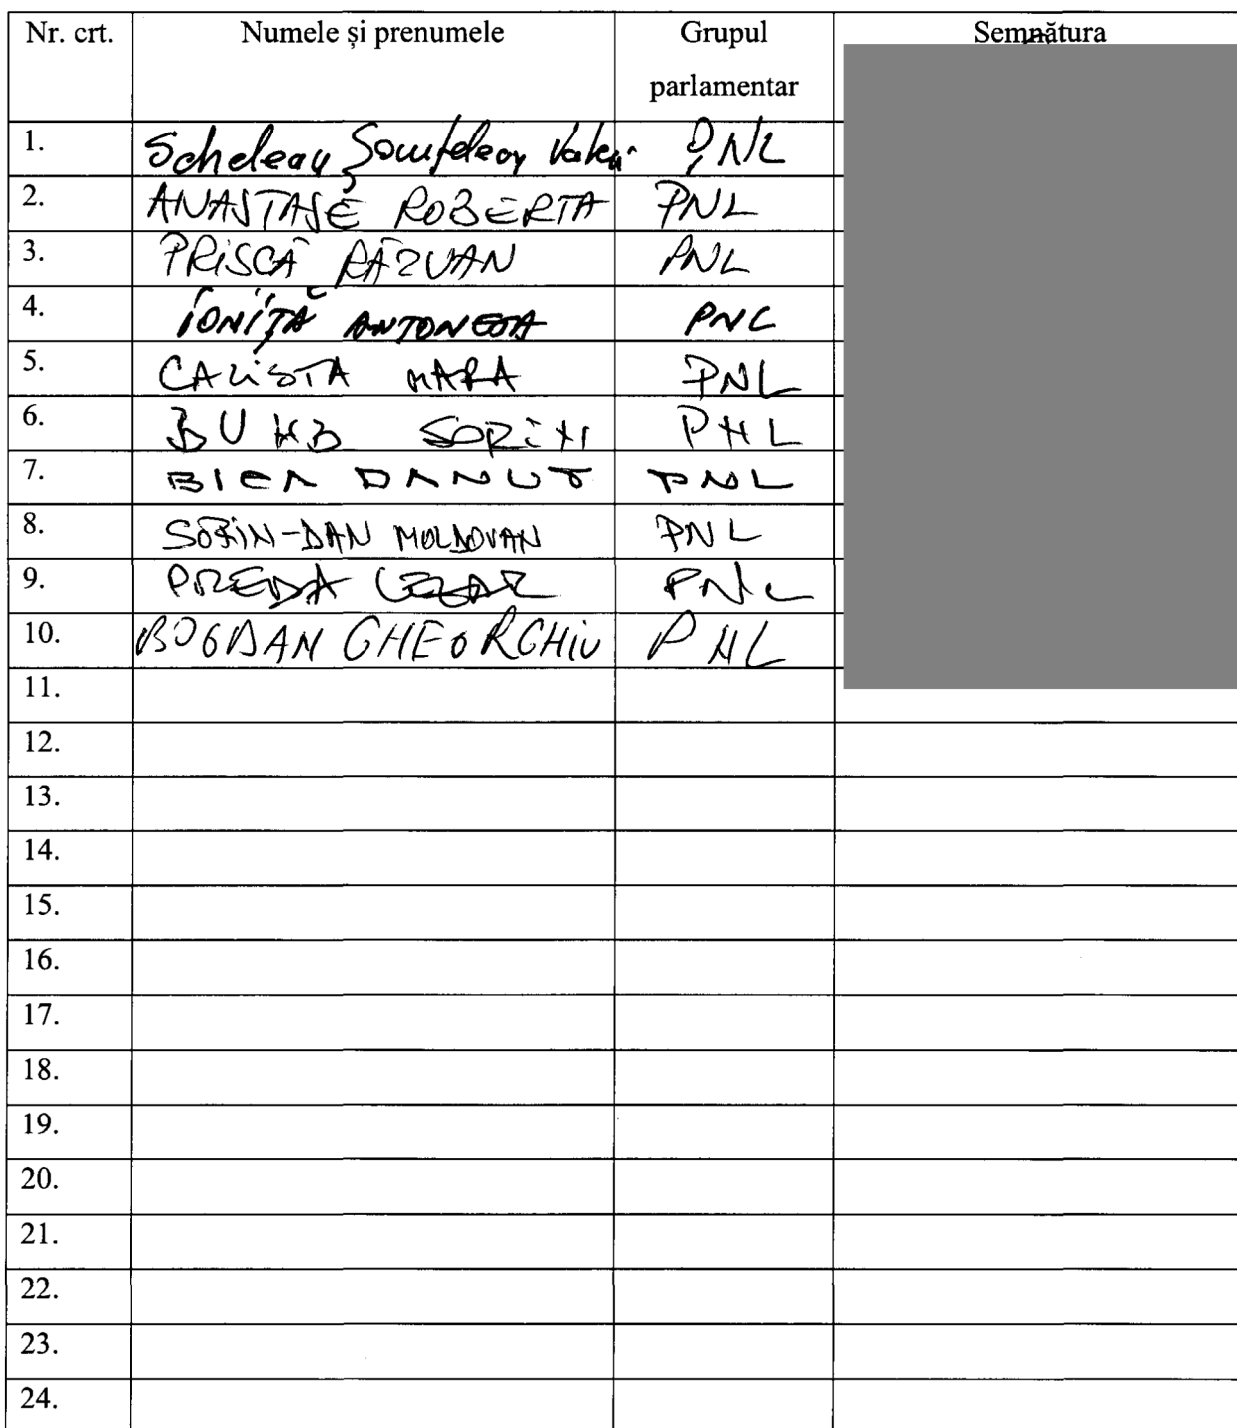 Nr. crt. Numele și prenumele Grupul Semnătura
parlamentar
1. PNL
2. ANASTASE ROBERTA PNL
3. PRISCĂ RĂZVAN PNL
4. IONIȚĂ ANTONETA PNL
5. CALISTA MARA PNL
6. BUMB SORIN PNL
7. BICA DANUT PNL
8. SORIN-DAN MOLDOVAN PNL
9. PREDA CEZAR PNL
10. BOGDAN GHEORGHIU PNL
11.
12.
13.
14.
15.
16.
17.
18.
19.
20.
21.
22.
23.
24.